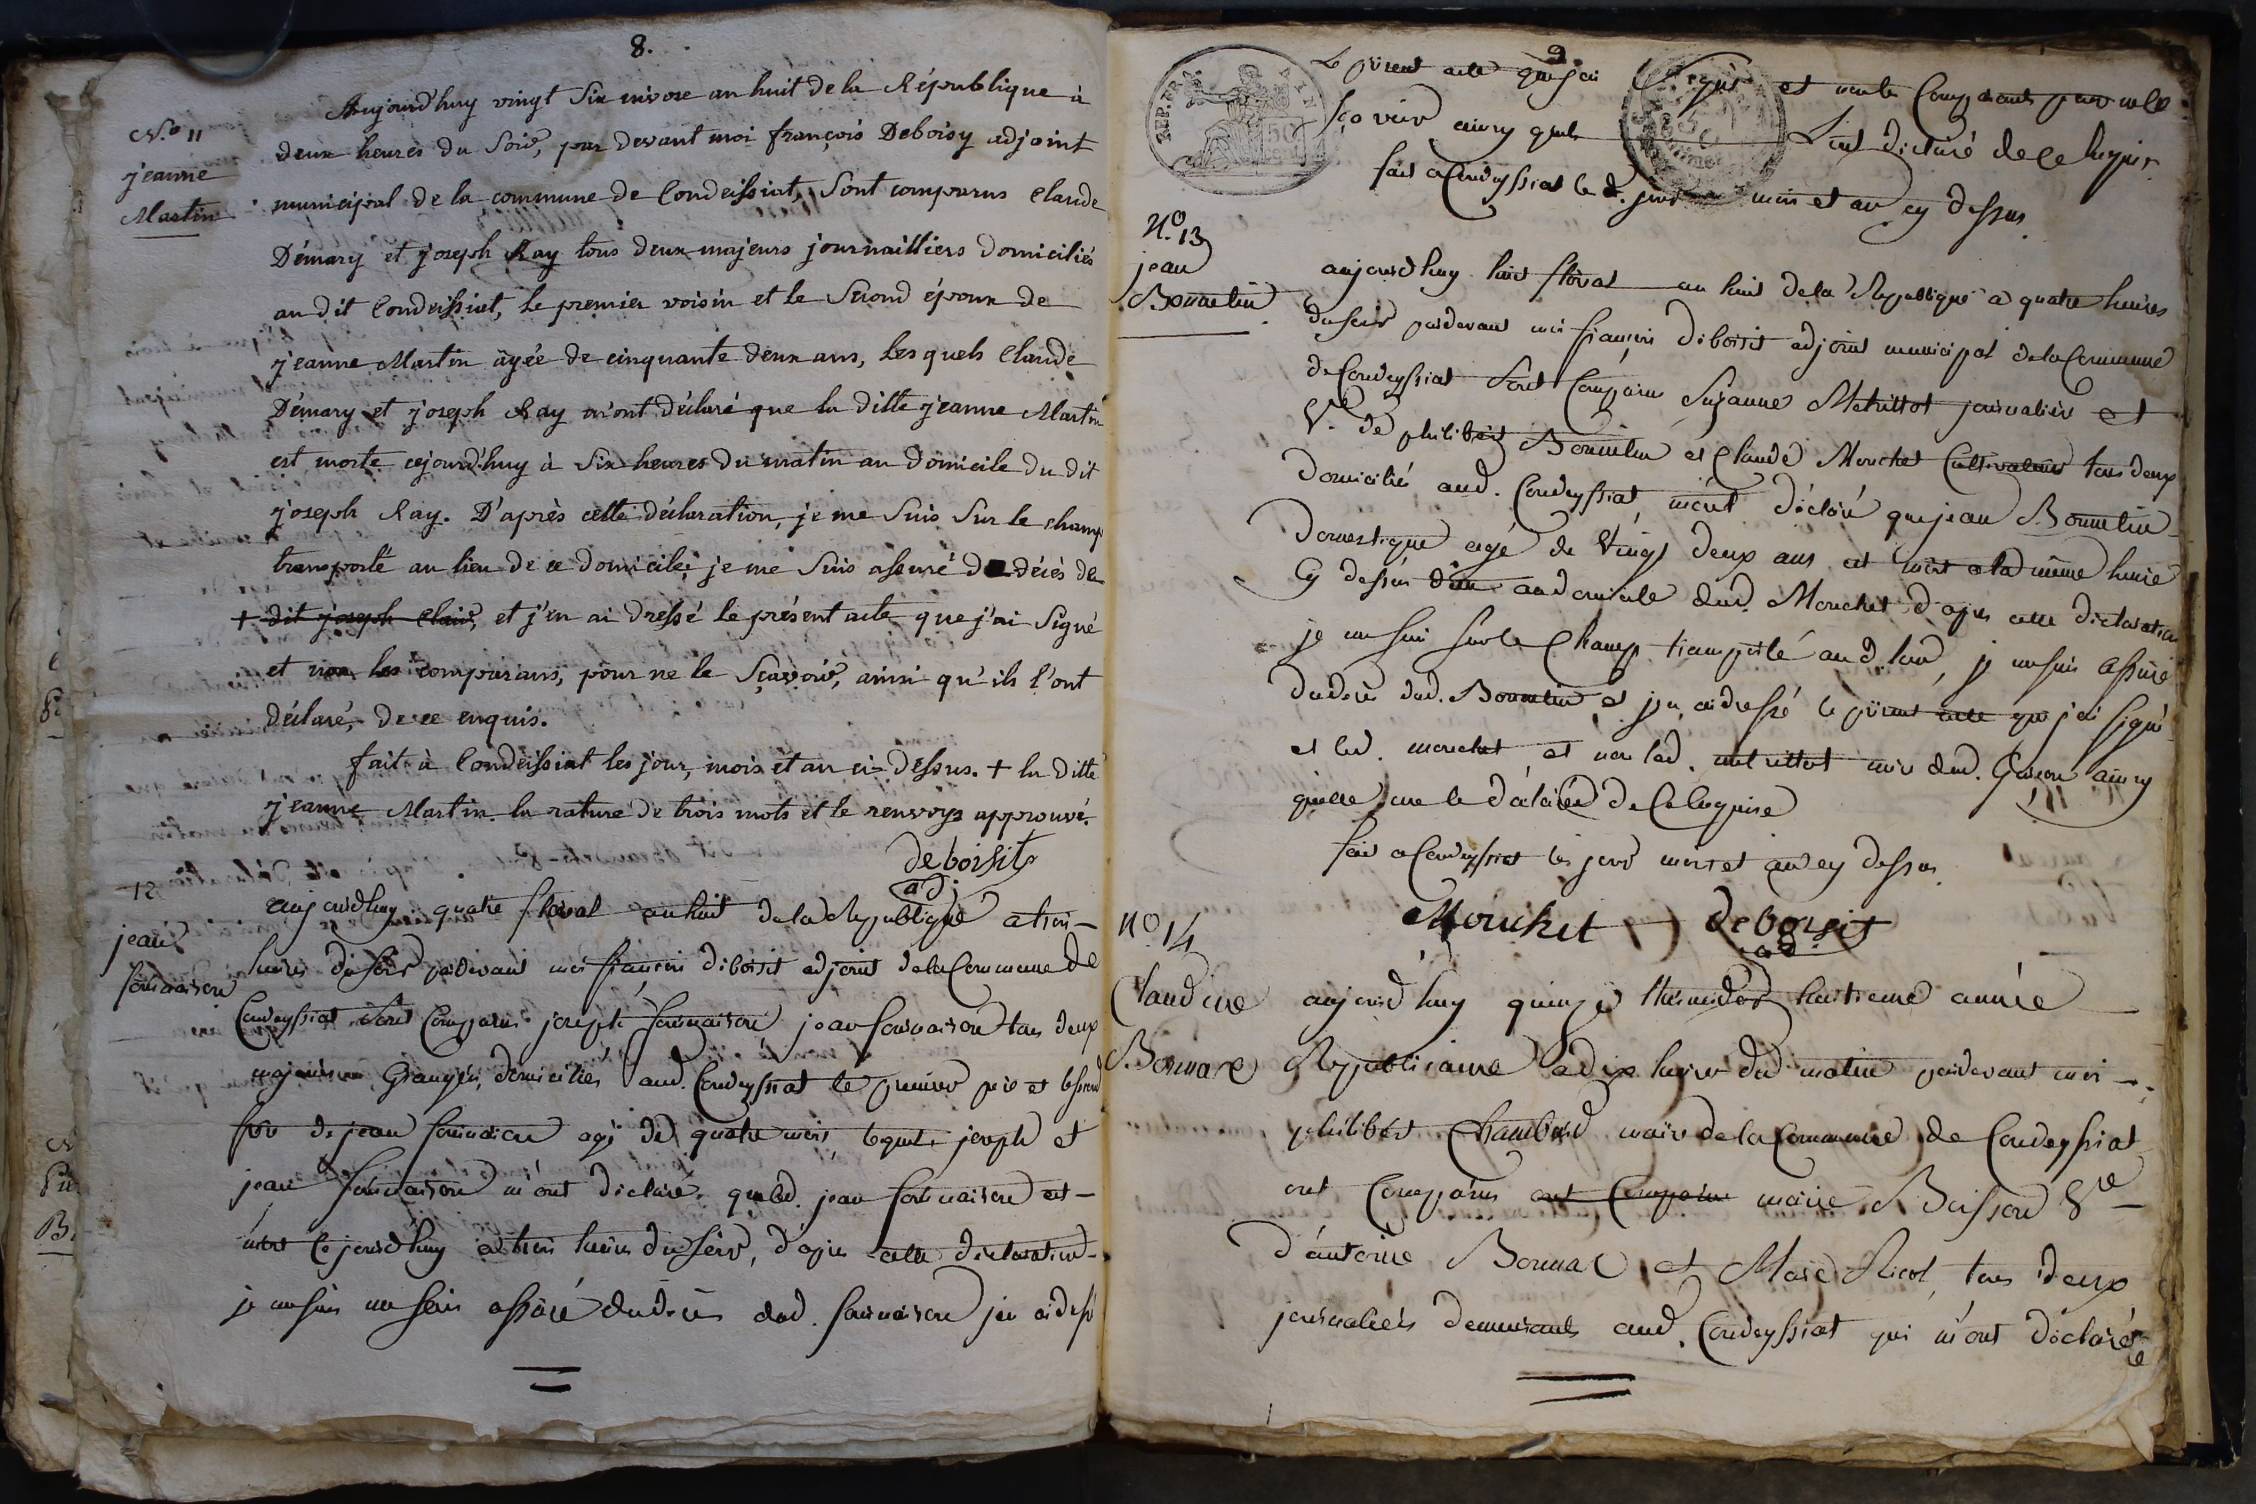 8.
N.o 11
jeanne
Martin
Aujourd'huy vingt Six nivose an huit de la République à
deux heures du Soir, par devant moi françois Deboisy adjoint
municipal de la commune de Condeissiat, Sont comparus Claude
Démary et joseph Ray tous deux majeurs journailliers domiciliés
au dit Condeissiat, le premier voisin et le Second époux de
jeanne Martin âgée de cinquante deux ans, Lesquels Claude
Démary et joseph Ray m'ont déclaré que la ditte jeanne Martin
est morte cejourd'huy à Six heures du matin au domicile du dit
joseph Ray. D'après cette déclaration, je me Suis Sur le champ
transporté au lieu de ce domicile, je me Suis assuré du décès de
+ dit joseph Claud, et j'en ai dressé le présent acte que j'ai Signé
et non les comparans, pour ne le Sçavoir, ainsi qu'ils l'ont
déclaré, de ce enquis.
fait à Condeissiat les jour, mois et an ci-dessus. + la ditte
jeanne Martin. la rature de trois mots et le renvoys approuvé.
deboisit
ad.
12
jean
fornaison
aujourdhuy quatre floreal an huit de la Republique a trois
heures du soir pardevant moi françois diboisit adjoint de la Commune de
Condeyssiat sont Comparus joseph fornaison jean fornaison tous deux
majeurs Grangers domiciliés aud. Condeyssiat le premier pere et le second
de jean fornaison agé de quatre mois, lesquels joseph et
jean fornaison m'ont declaré que led. jean fornaison est
mort ce jourdhuy a trois heures du soir, d'apres cette declaration
je me suis assuré du deces dud. fornaison j'en ai dressé
9
REP. FRA.
Le present acte que j'ai signé et non les Comparants pour ne le
sçavoir ainsy quils l'ont declaré de ce Enquis.
fait a Condeyssiat le d. jour mois et an cy dessus
N.o 13
jean
Bonnetin
aujourdhuy huit floreal an huit de la Republique a quatre heures
du soir pardevant moi françois diboisit adjoint municipal de la Commune
de Condeyssiat sont Comparus Suzanne Metrillot journaliere et
V.e de philibert Bonnetin et Claude Mouchet Cultivateur tous deux
domiciliés aud. Condeyssiat, m'ont déclaré que jean Bonnetin
domestique agé de vingt deux ans est mort a la même heure
Cy dessus au domicile dud. Mouchet d'apres cette declaration
je me suis sur le Champ transporté aud. lieu, je me suis assuré
du deces dud. Bonnetin et j'en ai dressé le present acte que j'ai signé
et led. mouchet et non lad. metrillot mere dud. Garcon ainsy
quelle me le déclaré de Ce Enquise
fait a Condeyssiat les jour mois et an cy dessus.
Mouchet deboisit
ad.
N.o 14
Claudine
Bonnare
aujourd'huy quinze thermidor huitieme année
Republicaine a dix heures du matin pardevant moi
philibert Chambard maire de la Commune de Condeyssiat
ont Comparus ont Comparus marie Buisson V.e
d'antoine Bonnar et Marie Nicol, tous deux
journaliers demeurants aud. Condeyssiat qui m'ont déclaré